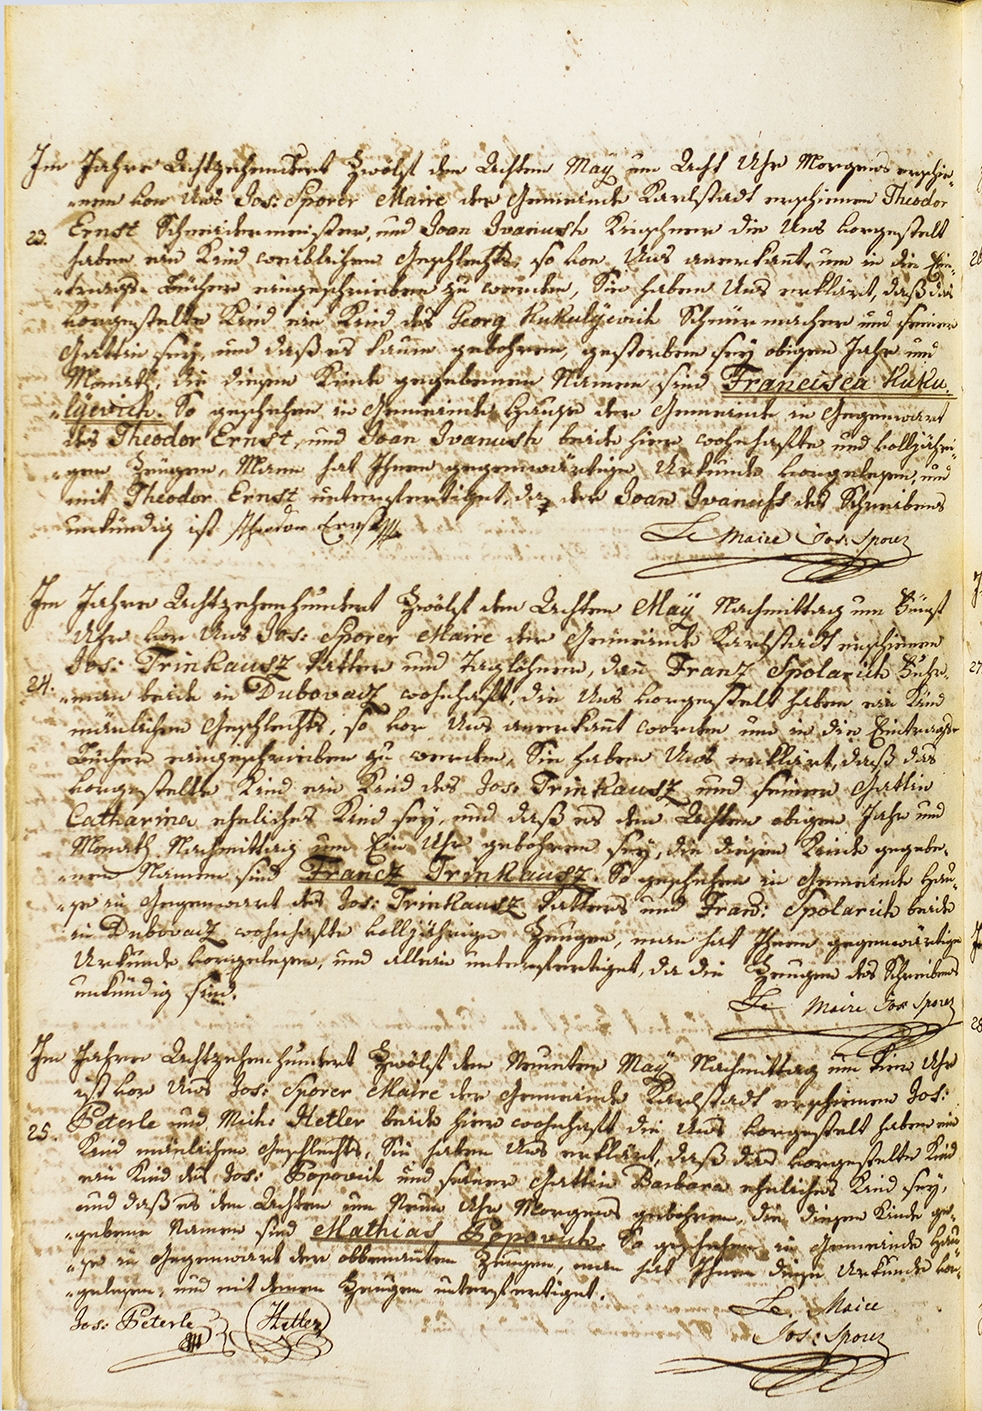 Im Jahre Achtzehenhundert Zwölf den Achten May um Acht Uhr Morgens erschie-
-nen vor Uns Jos: Sporer Maire der Gemeinde Karlstadt erschienen Theodor
23. Ernst Schneidermeister, und Joan Ivanush Kirschner die Uns vorgestelt
haben ein Kind weiblichen Geschlechts, so von Uns anerkañt, um in die Ein-
-tragß-Bücher eingeschrieben zu werden, Sie haben Uns erklärt, daß das
vorgestelte Kind ein Kind des Georg Kukulyevich Schnürmacher und seiner
Gattin sey, und daß es kaum gebohren, gestorben sey obigen Jahr und
Monath, die diesem Kinde gegebenen Namen sind Francisca Kuku-
-lyevich. So geschehen in Gemeinde Hause der Gemeinde in Gegenwart
des Theodor Ernst, und Joan Ivanush beide hier wohnhafte und volljähri-
-gen Zeugen, Mann hat Ihnen gegenwärtige Urkunde vorgelesen, und
mit Theodor Ernst unterfertiget, da der Joan Ivanush des Schreibens
unkündig ist Theodor Ernst
Le Maire Jos: Sporer
Im Jahre Achtzehenhundert Zwölf den Achten Maÿ Nachmittag um Fünf
Uhr vor Uns Jos: Sporer Maire der Gemeinde Karlstadt erschienen
Jos: Trinkausz Vatter und Taglöhner, dañ Franz Spolarich Fuhr-
24. -man beide in Dubovacz wohnhaft, die Uns vorgestelt haben ein Kind
mänlichen Geschlechts, so vor Uns anerkañt worden um in die Eintragß-
Bücher eingeschrieben zu werden, Sie haben Uns erklärt, daß das
vorgestelte Kind ein Kind des Jos: Trinkausz und seiner Gattin
Catharina eheliches Kind sey, und daß es den Achten obigen Jahr und
Monath Nachmittag um Ein Uhr gebohren sey, die diesem Kinde gegebe-
-nen Namen sind Francz Trinkausz. So geschehen in Gemeinde Hau-
-se in Gegenwart des Jos: Trinkausz Vatters und Fran: Spolarich beide
in Dubovacz wohnhafte volljährige Zeugen, man hat Ihnen gegenwärtige
Urkunde vorgelesen, und allein unterfertiget, da die Zeugen des Schreibens
unkündig sind.
Le Maire Jos: Sporer
Im Jahre Achtzehenhundert Zwölf den Neunten Maÿ Nachmittag um Vier Uhr
ist vor Uns Jos: Sporer Maire der Gemeinde Karlstadt erschienen Jos:
25. Peterle und Mich: Hetler beide hier wohnhaft die Uns vorgestelt haben ein
Kind mänlichen Geschlechts, Sie haben Uns erklärt, daß das vorgestelte Kind
ein Kind des Jos: Popovich und seiner Gattin Barbara eheliches Kind sey,
und daß es den Achten um Neun Uhr Morgens gebohren, die diesem Kinde ge-
-gebene Namen sind Mathias Popovich. So geschehen in Gemeinde Hau-
-se in Gegenwart der obbenañten Zeugen, man hat Ihnen diese Urkunde vor-
-gelesen, und mit denen Zeugen unterfertiget.
Le Maire
Jos: Peterle Hetler
Jos: Sporer